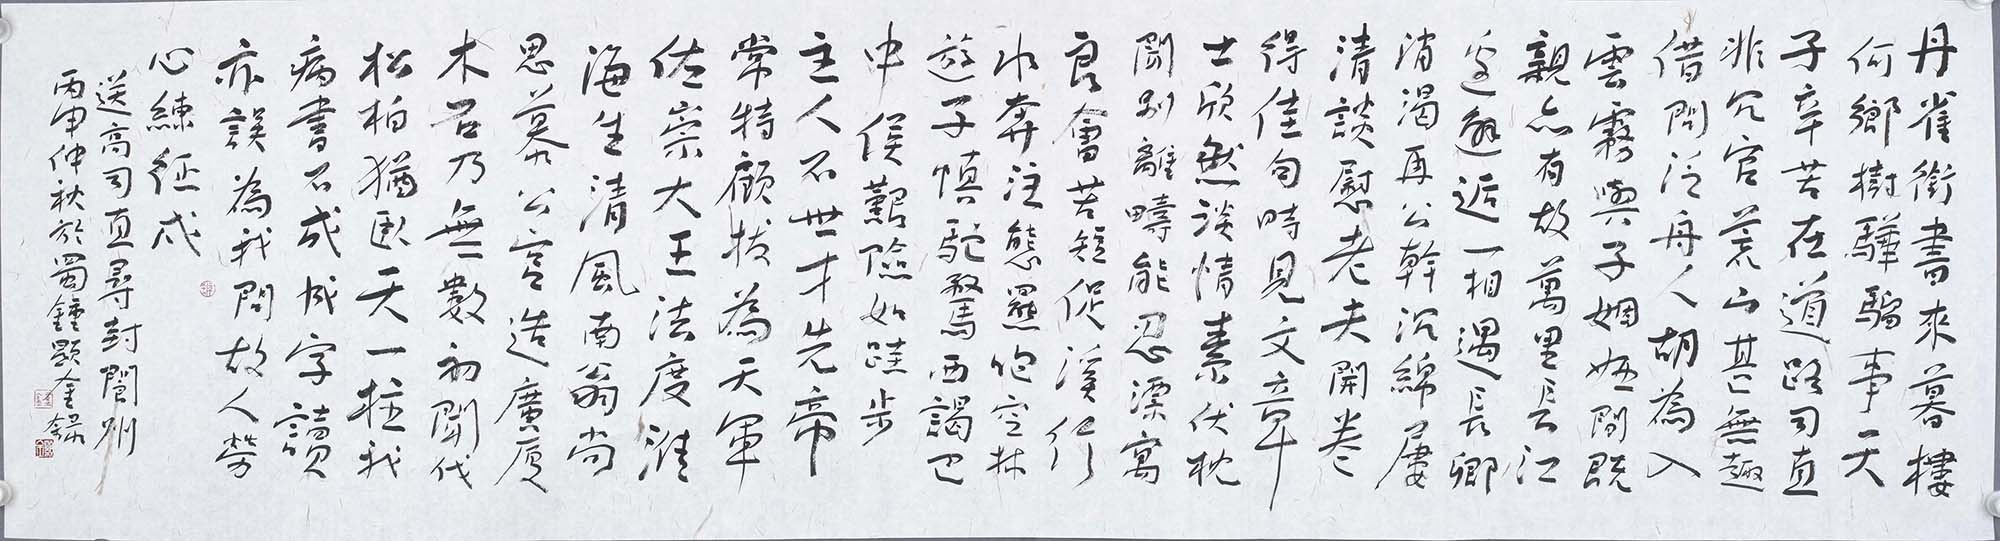 丹雀銜書來暮棲
何鄉樹驊騮事天
子辛苦在道路司直
非冗官荒山甚無趣
借問泛舟人胡為入
雲霧與子姻婭間既
親亦有故萬里長江
邊邂逅一相遇長卿
消渴再公幹沉綿屢
清談慰老夫開卷
得佳句時見文章
士欣然談情素伏枕
聞別離疇能忍漂寓
良會苦短促溪行
水奔注熊羆咆空林
遊子慎馳騖西謁巴
中侯艱險如跬步
主人不世才先帝
常特顧拔為天軍
佐崇大王法度淮
海生清風南翁尚
思慕公宮造廣廈
木石乃無數初聞伐
松柏猶臥天一柱我
病書不成成字讀
亦誤為我問故人勞
心練征戍
送高司直尋封閬州
丙申仲秋於蜀鐘顯金錄